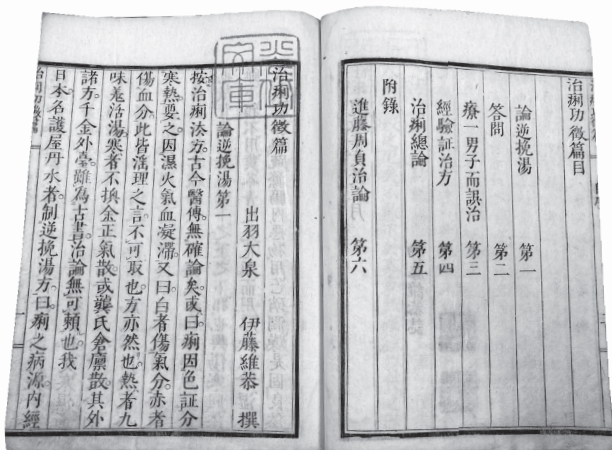 治痢功徵篇目
論逆挽湯 第一
答問 第二
療一男子而誤治 第三
經驗証治方 第四
治痢總論 第五
附錄
進藤周貞治論 第六
治痢功徵篇
論逆挽湯第一
出羽大泉 伊藤維恭 撰
按治痢法方古今醫傳無確論矣或曰痢因色証分
寒熱要之因濕火氣血凝滯又曰白者傷氣分赤者
傷血分此皆落理之言不可取也方亦然也熱者九
味羌活湯寒者不換金正氣散或龔氏倉廩散其外
諸方千金外臺雖為古書治論無可賴也我
日本名護屋丹水者制逆挽湯方曰痢之病源内經